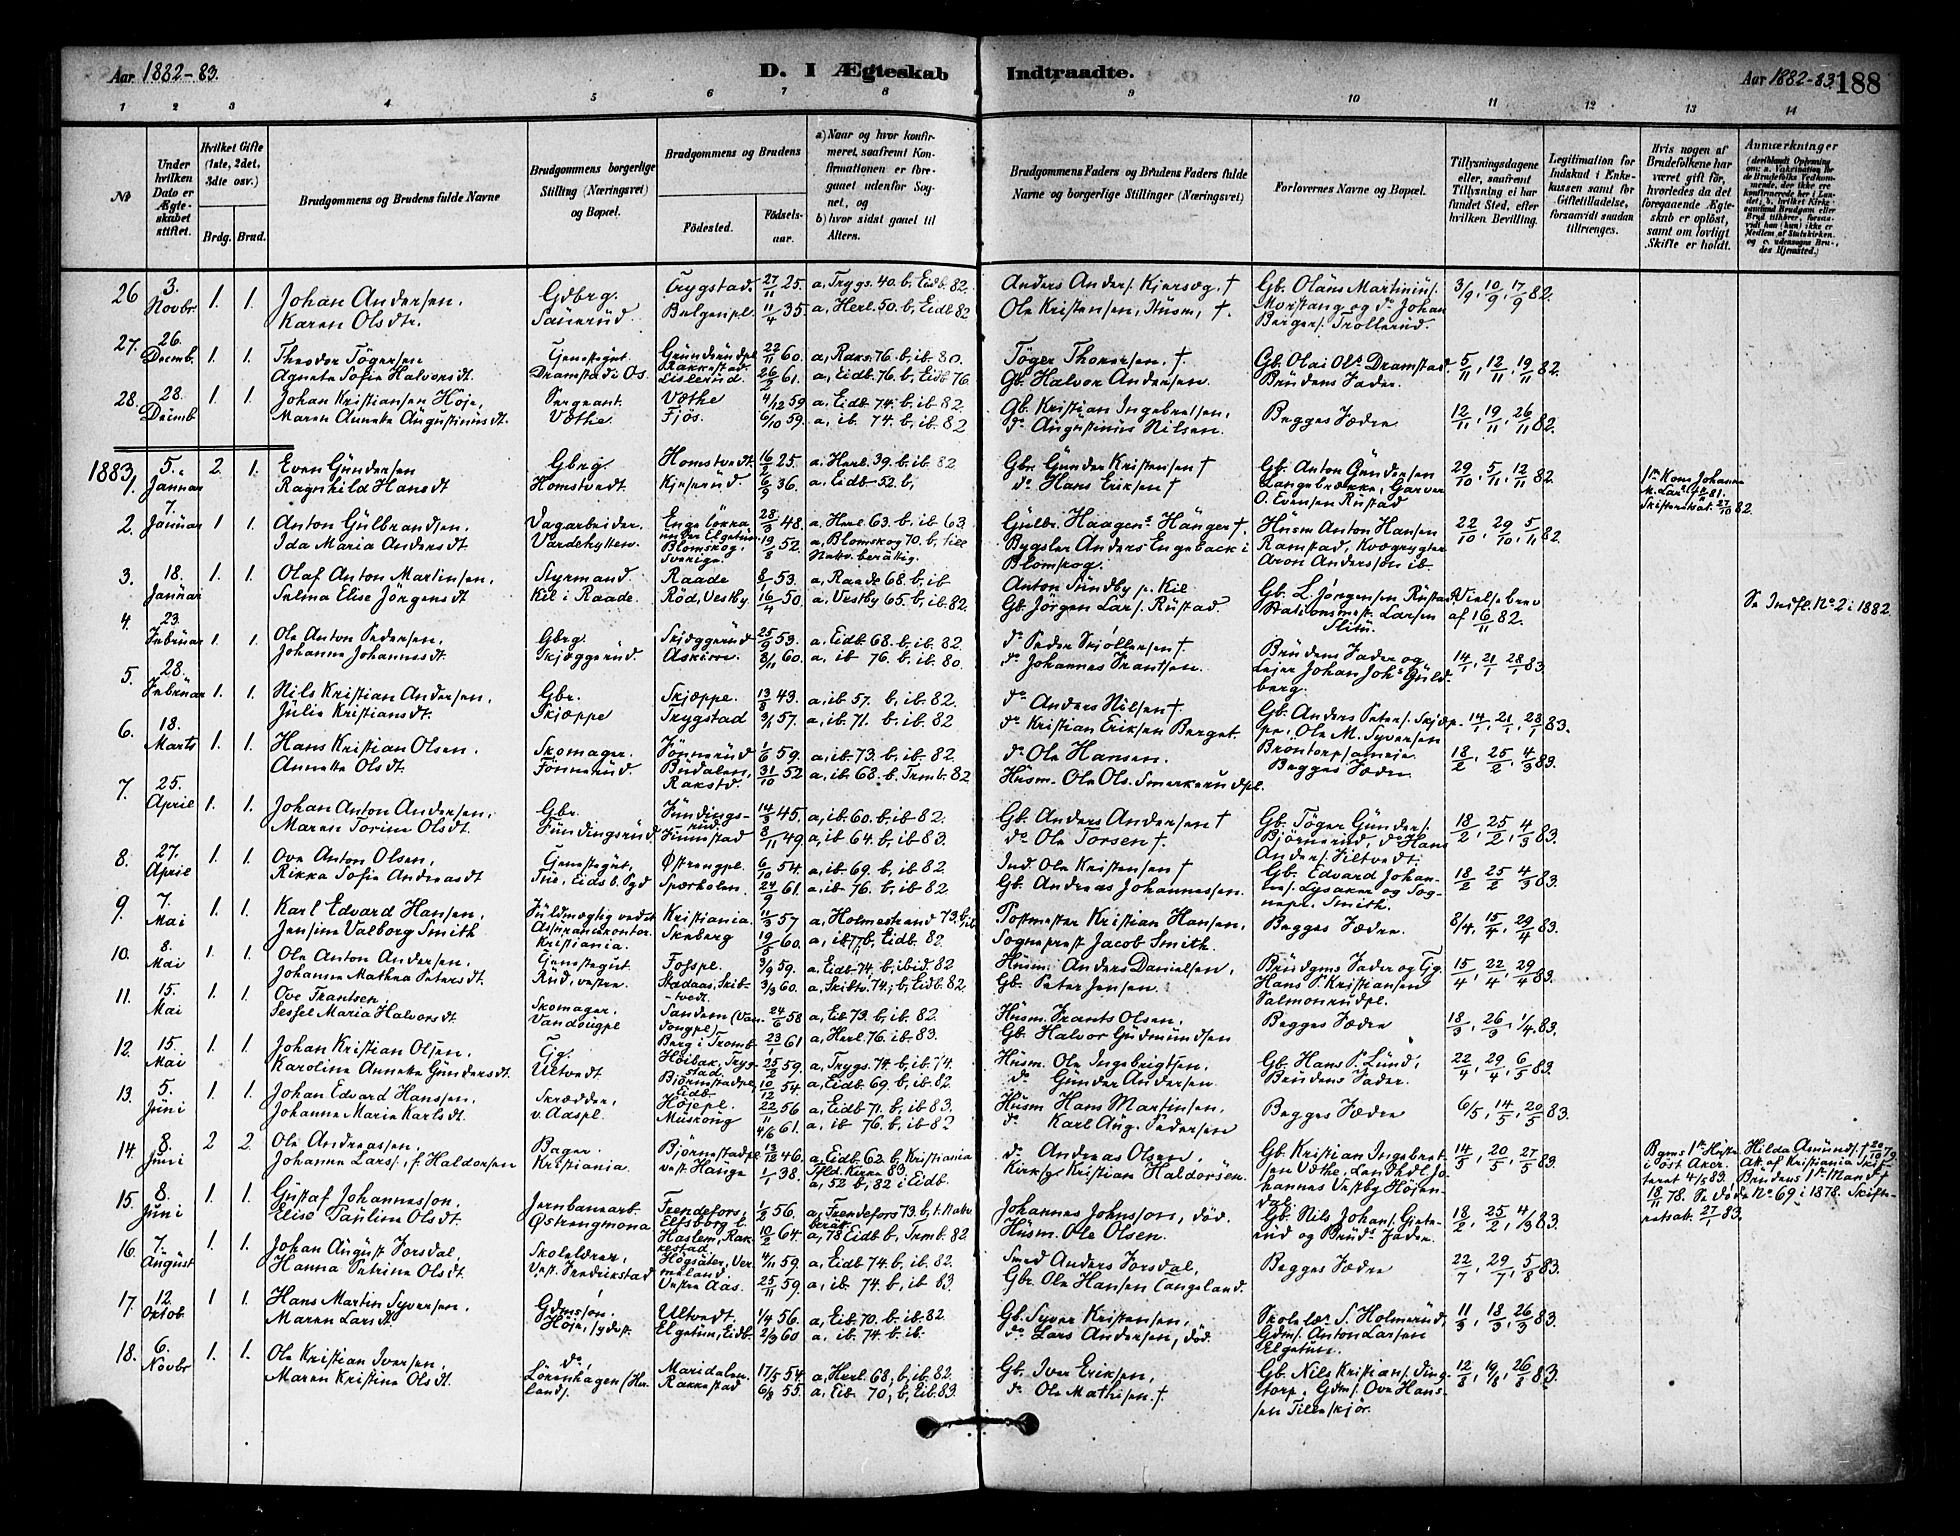 Aar 1882-83.
D. I Ægteskab Indtraadte.
Aar 1882-83. 188
1 2 3 4 5 6 7 8 9 10 11 12 13 14
No
Under hvilken Dato er Ægteskabet stiftet.
Hvilket Gifte (1ste, 2det, 3die osv.)
Brdg. Brud.
Brudgommens og Brudens fulde Navne
Brudgommens borgerlige Stilling (Næringsvei) og Bopæl.
Brudgommens og Brudens
Födested. Födselsaar.
a) Naar og hvor konfirmeret, saafremt Konfirmationen er foregaaet udenfor Sognet, og
b) hvor sidst gaaet til Alters.
Brudgommens Faders og Brudens Faders fulde Navne og borgerlige Stillinger (Næringsvei)
Forlovernes Navne og Bopæl.
Tillysningsdagene eller, saafremt Tillysning ei har fundet Sted, efter hvilken Bevilling.
Legitimation for Indskud i Enkekassen samt for Giftetilladelse, forsaavidt saadan tiltrænges.
Hvis nogen af Brudefolkene har været gift för, hvorledes da det foregaaende Ægteskab er oplöst, samt om lovligt Skifte er holdt.
Anmærkninger
26 3. Novbr 1. 1. Johan Andersen, Gdbrg. Trygstad. 27/11 25. a, Trygs. 40. b, Eidb. 82. Anders Anders. Kjersæg, † Gb. Olaus Martinius. 3/9, 10/9, 17/9 82.
Karen Olsdtr. Sauerud. 11/4 35. a, Herl. 50. b, Eidb 82 Ole Kristensen, Husm, †. Morstang og do Johan
Berger. Trollerud.
27. 26. Decmb. 1. 1. Theodor Tögersen Tjenestegut. Grundsrudpl. Rakkestad. 22/11 60. a, Raks. 76. b, ib 80. Töger Thorersen. †. Gb. Olai Ols. Dramstad 5/11, 12/11, 19/11 82.
Agnete Sofie Halvorsdt. Dramstad i Os. Lislerud. 26/2 61. a, Eidb. 76. b, Eidb 76 Gb. Halvor Andersen. Brudens Fader.
28. 28. Decmb 1. 1. Johan Kristiansen Höje, Sergeant. Vöthe 4/12 59 a, Eidb 74. b, ib 82. Gb. Kristian Ingebretsen, Begges Fædre. 12/11, 19/11, 26/11 82.
Maren Annette Augustinusdt. Vöthe. Fjös. 6/10 59. a, ib. 74. b, ib 82 do Augustinus Nilsen.
1883 1. 5. Januar 2. 1. Even Gundersen Gbrg. Homstvedt. 16/2 25. a. Herl. 39. b, ib 82 Gbr. Gunder Kristensen † Gb. Anton Gundersen 29/10, 5/11, 12/11 82. 1ste Kone Johanne
Ragnhild Hansdt Homstvedt. Kjeserud. 6/9 36. a, Eidb 52. b, do Hans Eriksen † Langebrække, Garver
O. Evensen Rustad Skifteretsat. 27/10 82.
2. 7. Januar 1 1. Anton Gulbrandsen. Vagarbeider. 28/3 48. a, Herl 63. b, ib 63 Gulbr. Haagens. Hanger †. Husm Anton Hansen 22/10, 29/10, 5/11 82.
Ida Maria Andersdt Vardehytten. Blomskog, Sverige. 19/5 52. a, Blomskog 70. b, till Nattv. berättig. Bygsler Anders Engeback i Blomskog. Ramstad, Kvægrygter Aron Andersson ib
3. 18. Januar 1. 1. Olaf Anton Martinsen, Styrmand. Raade 8/1 53. a, Raade 68. b, ib Anton Sundby p. Kil Gb. L. Jörgensen Rustad Vielsebrev
Selma Elise Jörgensdt Kil i Raade. Röd, Vestby. 16/4 50. a, Vestby 65. b, ib 82. Gb. Jörgen Lars. Rustad Stationsmest. Larsen Slitu. af 16/11 82. Se Indfl. No 2 i 1882.
4. 23. Februar 1. 1. Ole Anton Pedersen, Gbrg. Skjæggerud 25/9 53. a. Eidb. 68. b, ib. 82. do Peder Skjöllersen † Brudens Fader og 14/1, 21/1, 28/1 83.
Johanne Johannesdt. Skjæggerud. Askisse. 3/11 60. a, ib 76. b, ib 80. do Johannes Frantsen. Leier Johan Johs Guldberg.
5. 28. Februar 1. 1. Nils Kristian Andersen, Gbr. Skjæppe. 13/8 43. a, ib 57. b, ib 82. do Anders Nilsen †. Gb. Anders Peters. Skjæppe, 14/1, 21/1, 28/1 83.
Julie Kristiansdt. Skjæppe Trygstad 3/1 57. a, ib. 71. b, ib 82 do Kristian Eriksen Berget. Ole M. Syversen Brontorpsameie
6. 18. Marts 1. 1. Hans Kristian Olsen. Skomager. Fönnerud 1/6 59. a, ib 73. b, ib 82. do Ole Hansen. Begges Fædre. 18/2, 25/2, 4/3 83.
Annette Olsdt. Fönnerud. Budalen, Rakstd. 31/10 52 a, ib 68. b. Trmb. 82 Husm. Ole Ols. Smerkerudpl.
7. 25. April 1. 1. Johan Anton Andersen, Gbr. Fundingsrud 14/3 45. a, ib 60. b, ib 82. Gb. Anders Andersen † Gb. Töger Gunders. 18/2, 25/2, 4/3 83.
Maren Torine Olsdt. Fundingsrud. Funnstad 8/11 49 a, ib 64. b, ib 83. do Ole Torsen †. Bjönnerud, do Hans Anders. Tiltvedt.
8. 27. April 1. 1. Ove Anton Olsen, Tjenestegut, Østrengpl. 6/10 54. a, ib 69. b, ib 82. Ind. Ole Kristensen † Gb. Edvard Johan- 18/2 25/2 4/3 83.
Rikka Sofie Andreasdt Tue, Eidsb. Sgd Sporholen. 24/9 61 a, ib 76. b, ib 82 Gb. Andreas Johannessen. nes. Lysaker og Sognepr. Smith.
9. 7. Mai 1. 1. Karl Edvard Hansen, Fuldmægtig ved et Kristiania. 11/3 57 a, Holmestrand 73. b, ib Postmester Kristian Hansen, Begges Fædre. 8/4, 15/4, 29/4 83.
Jensine Valborg Smith Assurancekontor. Kristiania. Skaberg 19/8 60. a, ib 77 b, Eidb. 82. Sogneprest Jacob Smith.
10. 8. Mai 1. 1. Ole Anton Andersen, Tjenestegut Fosspl. 3/9 59. a, Eidb 74, b, ibid. 82 Husm. Anders Danielsen, Brudgms Fader og Tjg. 15/4, 22/4, 29/4 83.
Johanne Mathea Petersdt. Rud, vestre. Stadaas, Skibtvedt. 3/3 60. a, Skibtv. 74, b, Eidb 82. Gb. Peter Jensen. Hans P. Kristiansen Salmonrudpl.
11. 15. Mai 1. 1. Ove Frantsen, Skomager, Sandem (Vandougpl) 24/6 58 a, Eib 73. b, ib 82. Husm. Frants Olsen, Begges Fædre 18/3, 26/3, 1/4 83.
Sessel Maria Halvorsdt. Vandougpl Berg i Tromb. 23/1 61 a, Herl. 76. ib. 83. Gb. Halvor Gudmundsen
12. 15. Mai 1. 1. Johan Kristian Olsen, Tjg. Höibak, Trygstad. 25/2 59. a, Trygs. 74. b, ib. 74. Husm. Ole Ingebrigtsen, Gb. Hans P. Lund, 22/4, 29/4, 6/5 83.
Karoline Annette Gundersdt. Ultvedt. Björnstadpl, Eidb 10/12 54. a, Eidb. 69. b, ib. 82 do Gunder Andersen Brudens Fader.
13. 5. Juni 1. 1. Johan Edvard Hansen, Skrædder, Höjepl. 22/11 56 a, Eidb 71. b, ib 83. Husm Hans Martinsen, Begges Fædre 6/5, 14/5, 20/5 83.
Johanne Marie Karlsdt. v. Aaspl. Muskoug 4/6 61. a, ib 76. b, ib 82 do Karl Aug. Pedersen
14. 8. Juni 2 2. Ole Andreassen, Bager. Björnstadpl 13/12 46. a, Eidb 62. b, Kristiania do Andreas Olsen. Gb. Kristian Ingebret- 14/5, 20/5, 27/5 83. Bgms 1ste Hustru Hilda Amunds. † 20/10 79.
Johanne Lars. f. Haldorsen Kristiania. vest Hauge 1/1 38. a, 52 b, 82 i Eidb. Kirkes. Kristian Haldorsen. sen Vöthe, Landhdl. Johannes Vestby Höjendal. i öst Aker. Att. af Kristiania Skifteret 4/5 83. Brudens 1ste Mand †
18/11 78. Se döde No 69 i 1878. Skifteretsat. 27/1 83.
15 8. Juni 1. 1. Gustaf Johannesson, Jernbanearb. Frendefors, Elfsborg l. 1/2 56. a, Frendefors 73. b, t. Nattv. berät. Johannes Johnsson, död. Gb. Nils Johans. Gjeterud 18/2, 25/2, 4/3 83.
Elise Pauline Olsdt Østrengmona Haslem, Rakkestad 10/2 64. a, 78 Eidb b, Trmb. 82 Husm. Ole Olsen. og Bruds Fader.
16. 7. August 1. 1. Johan August Forsdal, Skolelærer, Högsäter, Vermeland. 4/11 59 a, Eidb 74. b, ib 82. Smed Anders Forsdal, Begges Fædre 22/7, 29/7, 5/8 83.
Hanna Petrine Olsdt. Vest. Fredrikstad Vestre Aas. 25/11 59. a, ib 74. b, ib 83 Gbr. Ole Hansen Tangeland.
17. 12. Oktob. 1 1. Hans Martin Syversen. Gdmssön. Ultvedt. 1/4 56. a, Eib. 70. b, ib. 82 Gb. Syver Kristensen, Skolelær. S. Holmerud, 11/3, 18/3, 26/3 83.
Maren Larsdt Höie, sydvst. Elgetun, Eidb. 2/3 60 a, ib. 74. b, ib. do Lars Andersen, död. Gdms. Anton Larsen Elgetun.
18. 6. Novbr 1. 1. Ole Kristian Iversen, do, Maridalen. 17/5 54. a, Herl 68, b, ib. 82 Gb. Iver Eriksen, Gb. Nils Kristians. Ting- 12/8, 19/8, 26/8 83
Maren Kristine Olsdt. Lörenhagen (Herlands. Rakkestad 6/3 55. a, Eib 70, b, Eib. 83. do Ole Mathisen. †. torp, Gdms. Ove Hanssen Tilenskjör.